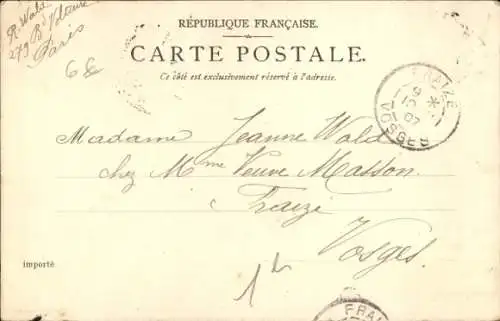 R. Wald
279 Bd Voltaire
Paris
6
RÉPUBLIQUE FRANÇAISE.
CARTE POSTALE.
Ce côté est exclusivement réservé à l'adresse.
FRAIZE
9
15
07
VOSGES
Madame Jeanne Wald
chez Mme Veuve Masson
Fraize
Vosges.
importé
FRAI